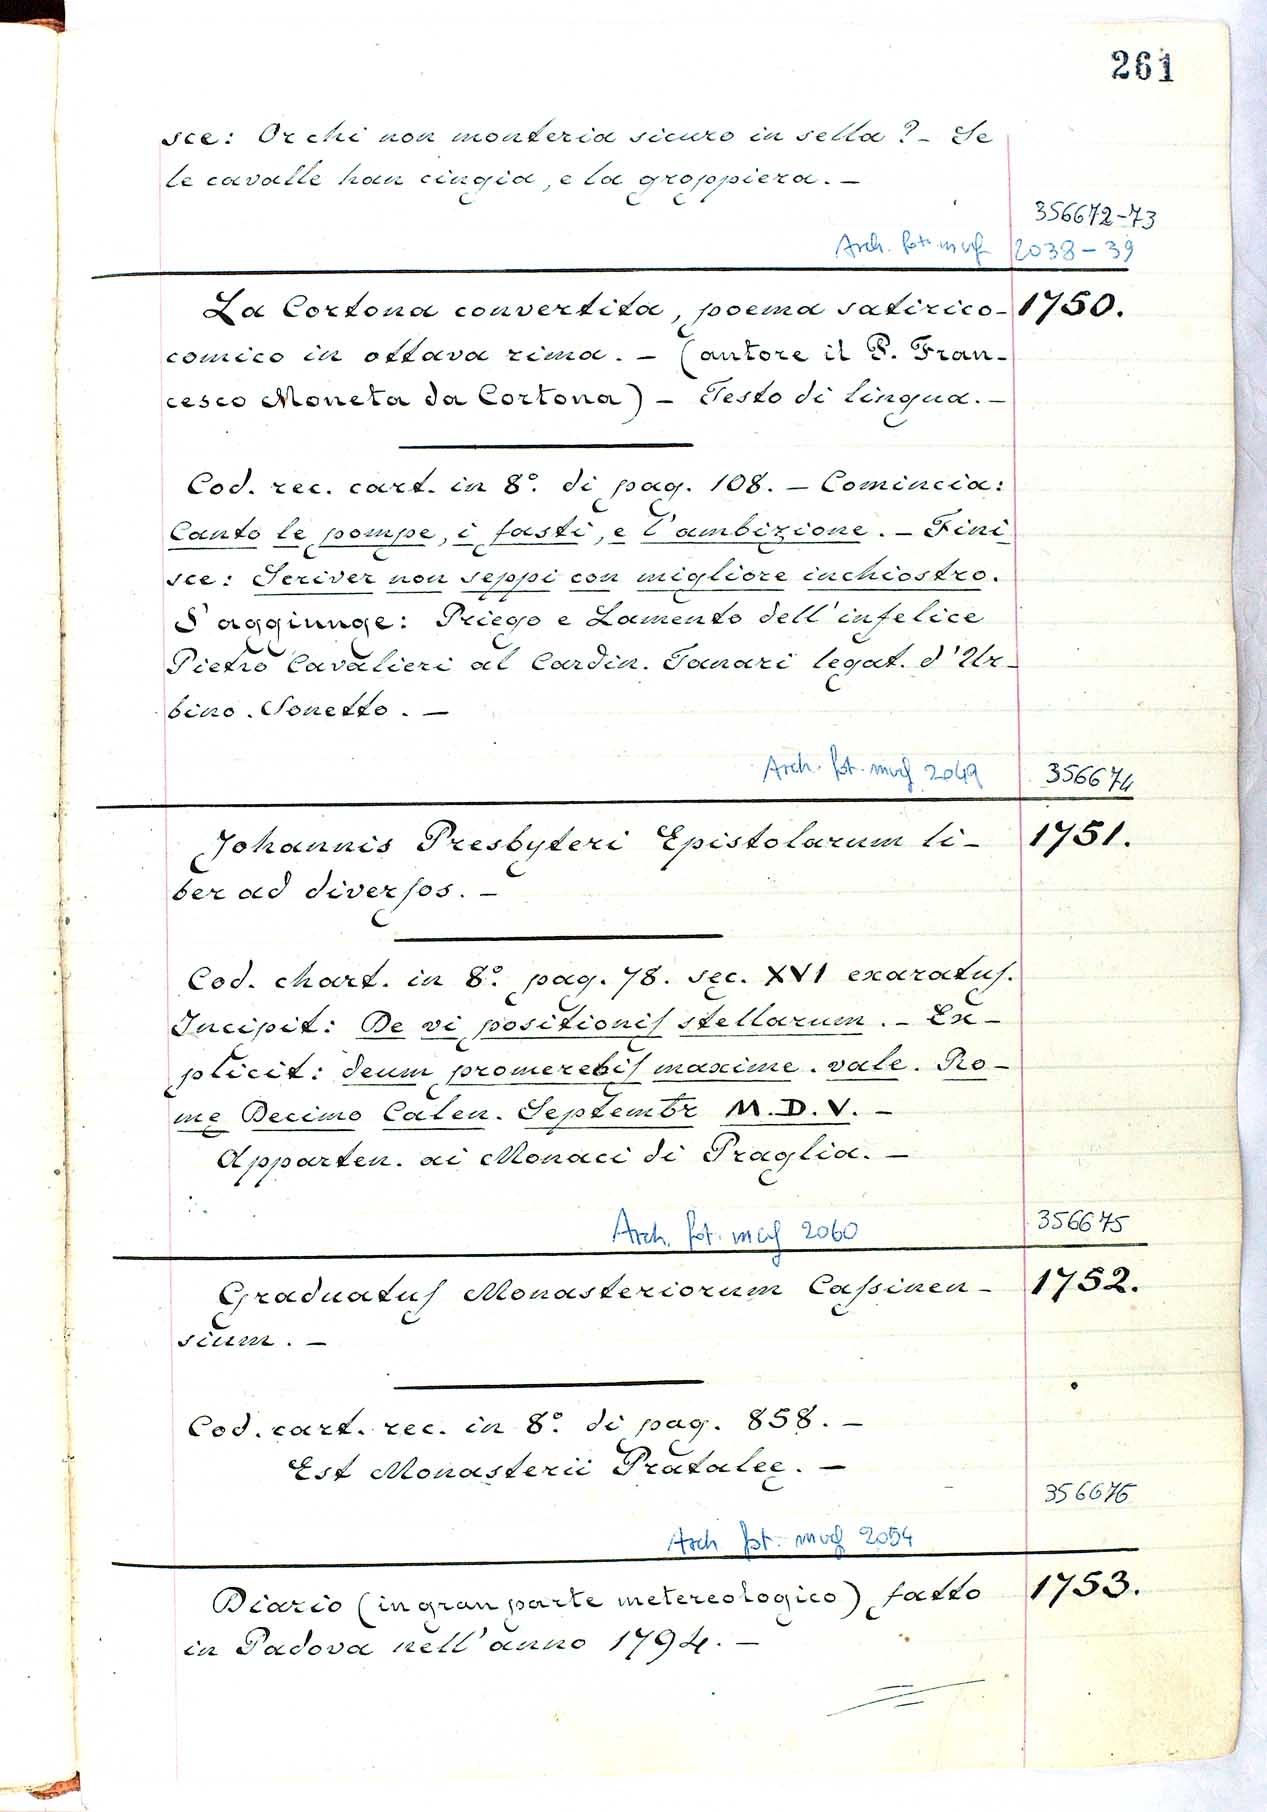 261
sce: Or chi non monteria sicuro in sella? - Se
le cavalle han cingia, e la groppiera. -
356672-73
Arch. fot. mvcf 2038-39
La Cortona convertita, poema satirico- 1750.
comico in ottava rima. - (autore il P. Fran-
cesco Moneta da Cortona) - Testo di lingua. -
Cod. rec. cart. in 8°. di pag. 108. - Comincia:
Canto le pompe, i fasti, e l'ambizione. - Fini
sce: Scriver non seppi con migliore inchiostro.
S'aggiunge: Priego e Lamento dell'infelice
Pietro Cavalieri al Cardin. Tanari legat. d'Ur-
bino. Sonetto. -
Arch. fot. mvcf 2049 356674
Johannis Presbyteri Epistolarum li- 1751.
ber ad diverſos. -
Cod. chart. in 8°. pag. 78. sec. XVI exaratuſ.
Incipit: De vi positioniſ stellarum. - Ex-
plicit: deum promerebiſ maxime. vale. Ro-
mę Decimo Calen. Septembr M.D.V. -
Apparten. ai Monaci di Praglia. -
356675
Arch. fot. mvcf 2060
Graduatuſ Monasteriorum Caſsinen- 1752.
sium. -
Cod. cart. rec. in 8°. di pag. 858. -
Est Monasterii Prataleę. -
356676
Arch fot. mvcf 2054
Diario (in gran parte metereologico) fatto 1753.
in Padova nell'anno 1794. -